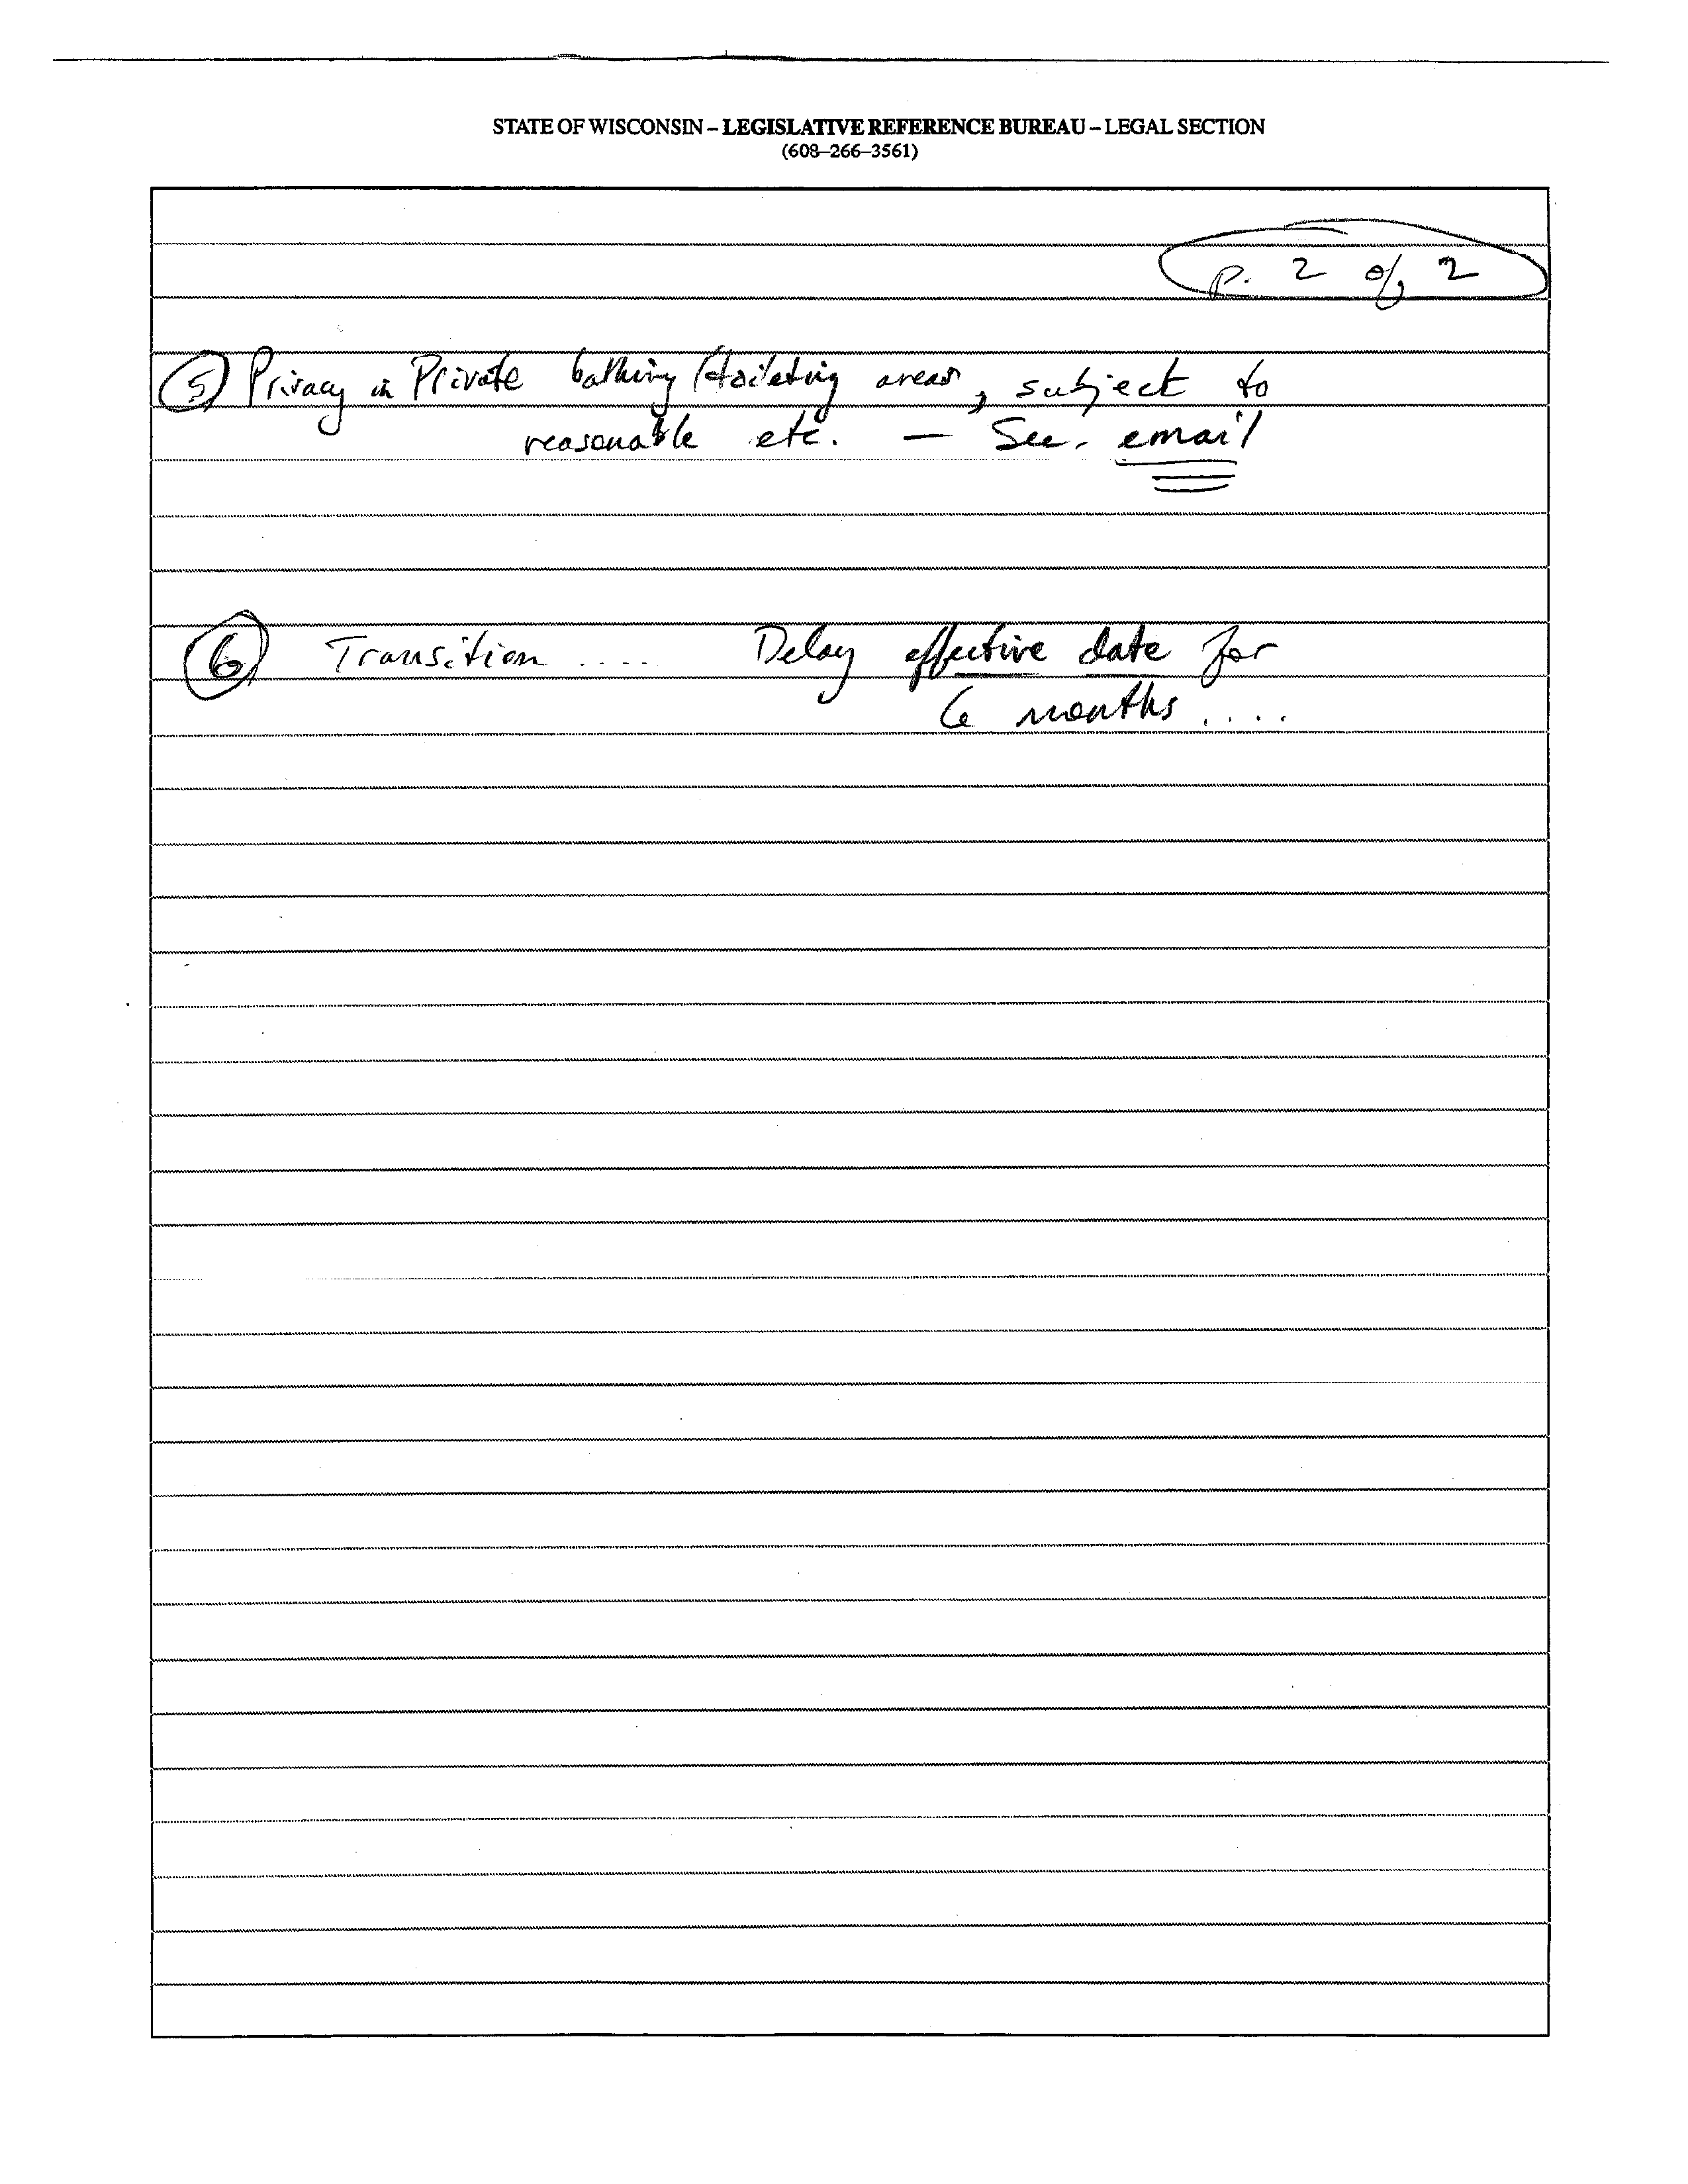 STATE OF WISCONSIN – LEGISLATIVE REFERENCE BUREAU – LEGAL SECTION
(608–266–3561)
p. 2 of 2
5 Privacy in Private bathing/toileting areas, subject to
reasonable etc. — See. email
6 Transition .... Delay effective date for
6 months ....